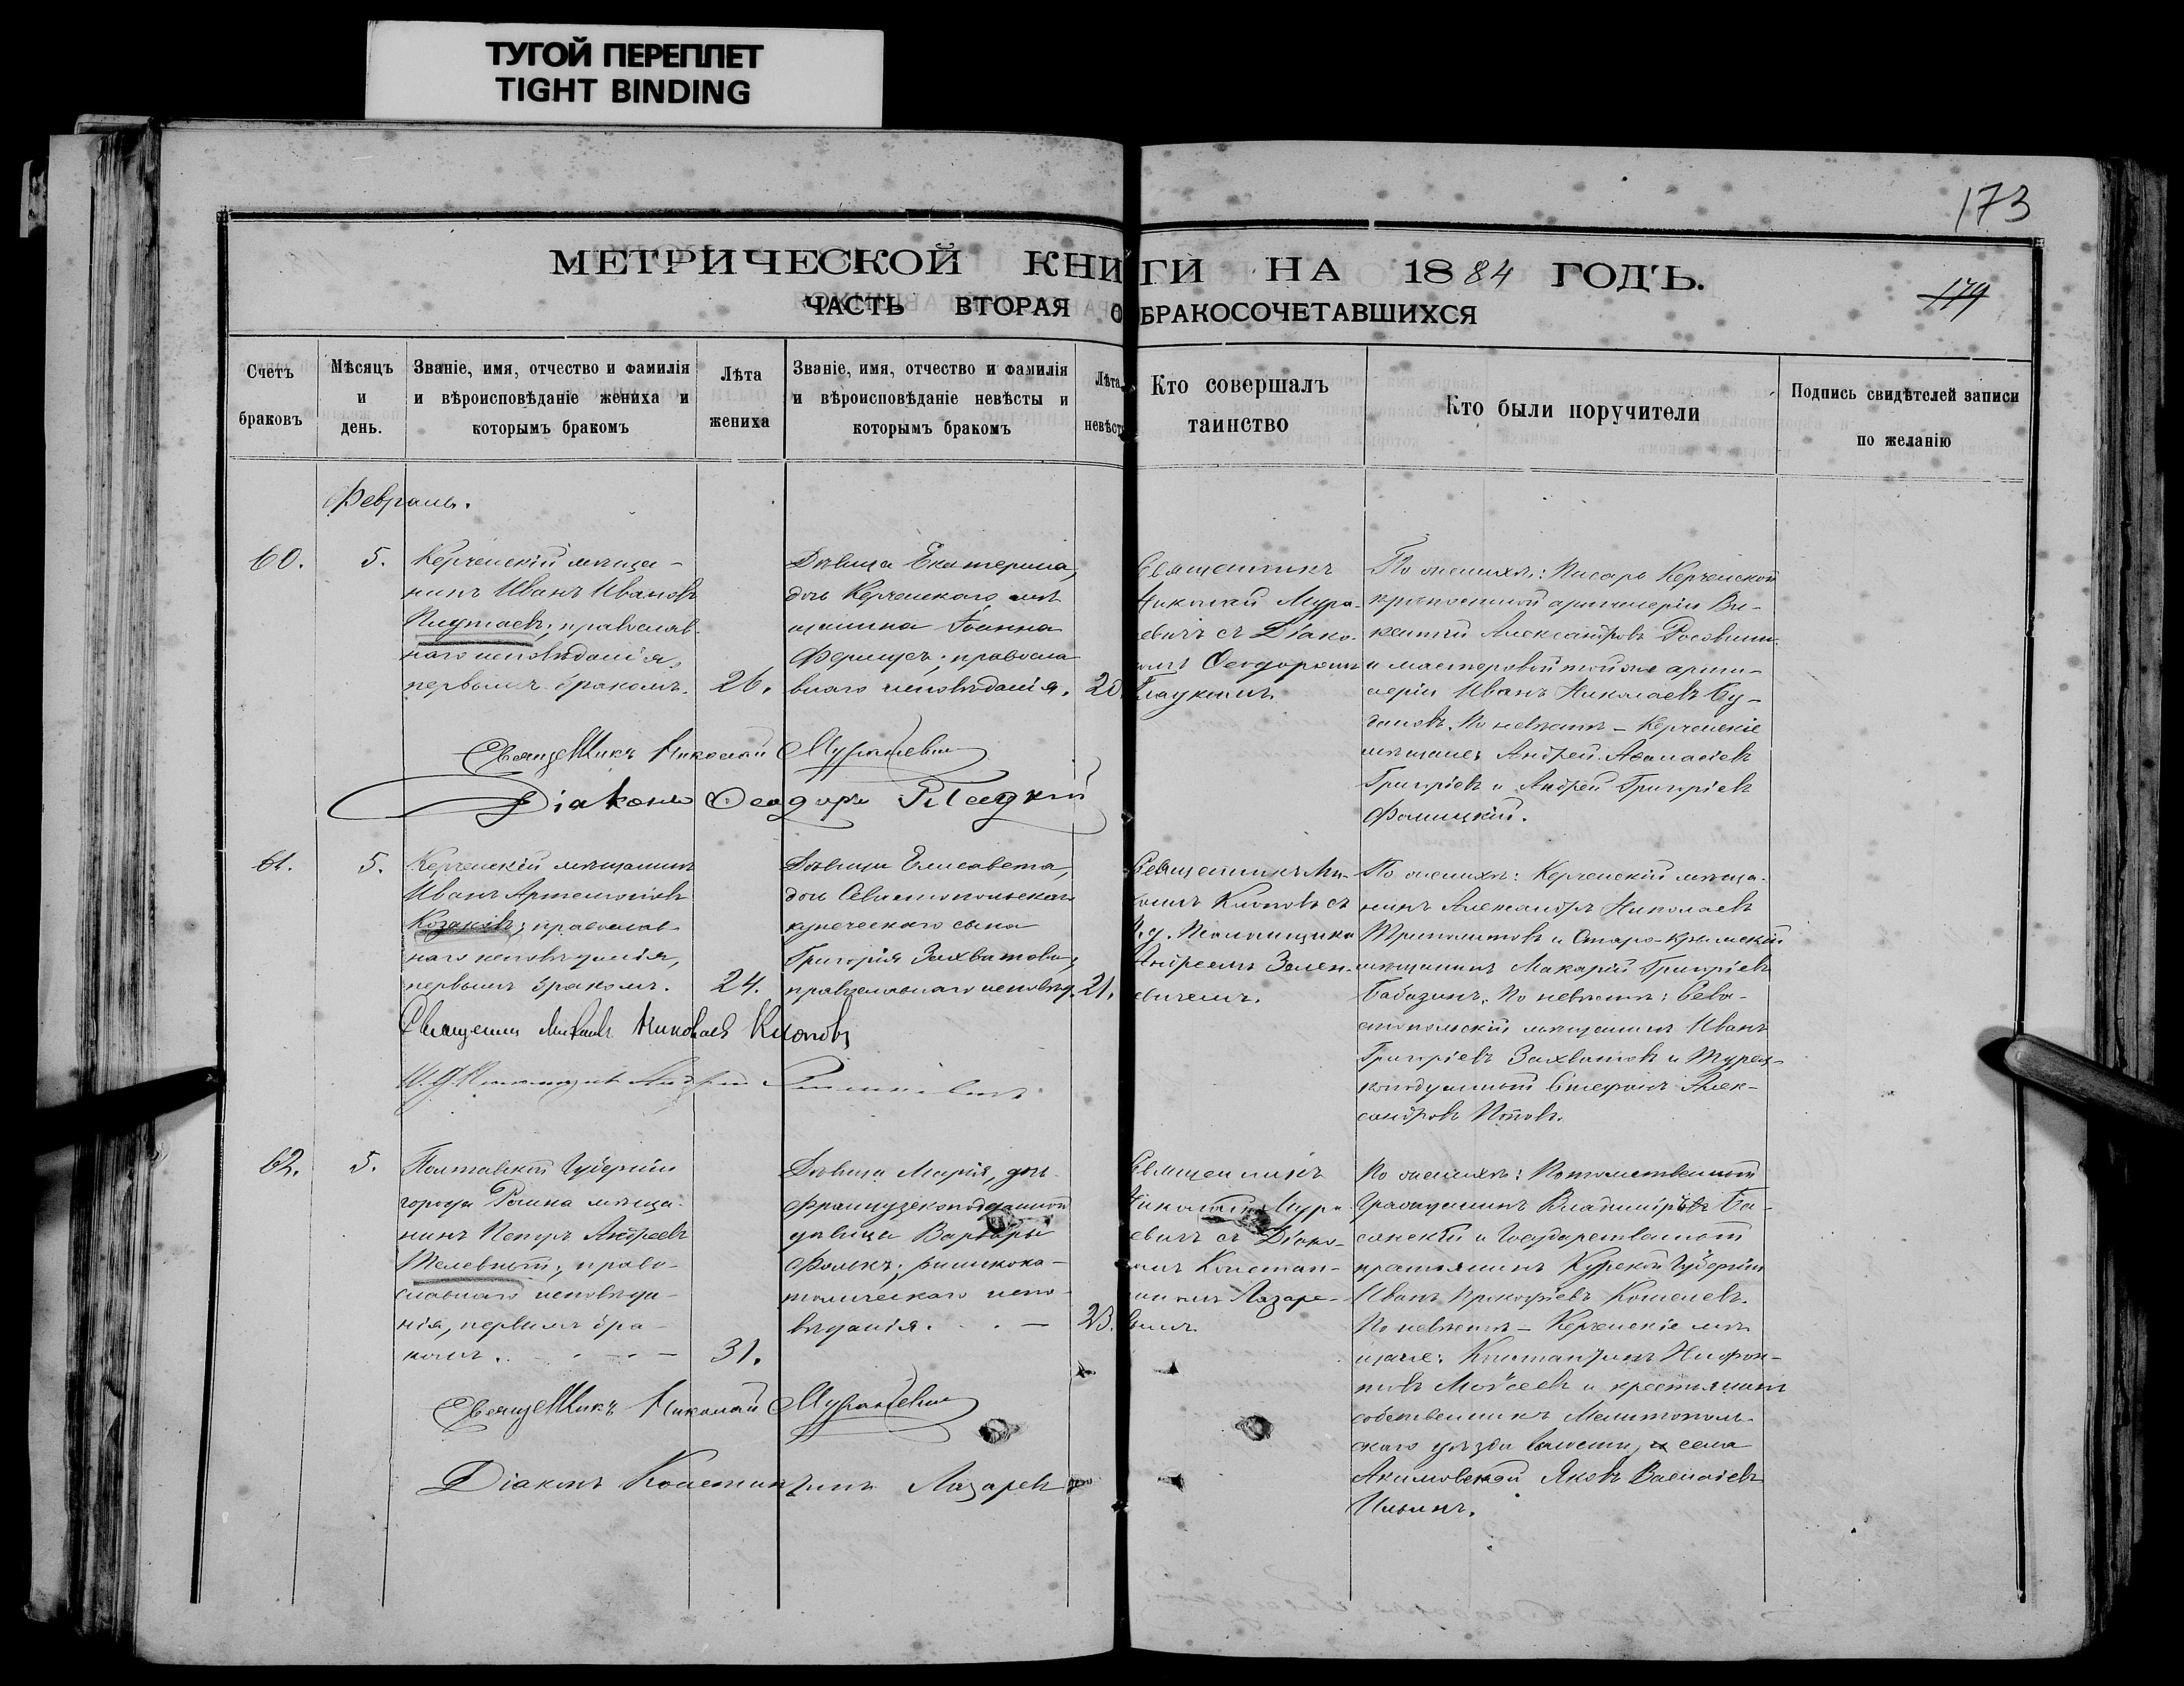 ТУГОЙ ПЕРЕПЛЕТ
TIGHT BINDING
173
МЕТРИЧЕСКОЙ КНИГИ НА 1884 ГОДЪ.
179
ЧАСТЬ ВТОРАЯ О БРАКОСОЧЕТАВШИХСЯ
Счетъ
браковъ
Мѣсяцъ
и
день.
Званіе, имя, отчество и фамилія
и вѣроисповѣданіе жениха и
которымъ бракомъ
Лѣта
жениха
Званіе, имя, отчество и фамилія
и вѣроисповѣданіе невѣсты и
которымъ бракомъ
Лѣта
невѣст
Кто совершалъ
таинство
Кто были поручители
Подпись свидѣтелей записи
по желанію
Февраль.
60.
5.
Керченскій мѣща-
нинъ Иванъ Ивановъ
православ-
наго исповѣданія,
первымъ бракомъ.
26.
Дѣвица Екатерина,
дочь Керченскаго мѣ
щанина Іоанна
православ
внаго исповѣданія.
20
Священникъ
Николай Мура-
евичъ съ Діако-
омъ Ѳеодоромъ
Глаукимъ
По женихѣ: Писарь Керченской
крѣпостной артиллеріи Ви-
кентій Александровъ
и мастеровой той же артил-
леріи Иванъ Николаевъ Бу-
дановъ. По невѣстѣ - Керченскіе
мѣщане: Андрей Аѳанасіевъ
Григорьевъ и Андрей Григорьевъ
Фомицкій.
Священникъ Николай Мурашевич
Діаконъ Ѳеодоръ
61.
5.
Керченскій мѣщанинъ
Иванъ Артемоновъ
Козаковъ; православ-
наго исповѣданія,
первымъ бракомъ.
24.
Дѣвица Елисавета,
дочь Севастопольскаго
купеческаго сына
Григорія Захватова;
православнаго исповѣд.
21.
Священникъ Ми-
аилъ Клоповъ съ
И. д. Псаломщика
Андреемъ Зелен-
евичемъ.
По женихѣ: Керченскій мѣща-
нинъ Александръ Николаевъ
Триполитовъ и Старо-Крымскій
мѣщанинъ Макарій Григорьевъ
Бабазинъ. По невѣстѣ: Сева-
стопольскій мѣщанинъ Иванъ
Григорьевъ Захватовъ и Турец-
коподданный Стефанъ Алек-
сандровъ Поповъ.
Священникъ Михаилъ Николаев Клоповъ
И. д. Псаломщика Андрей
62.
5.
Полтавской Губерніи
города Ромна мѣща-
нинъ Петръ Андреевъ
Телевный; право-
славнаго исповѣда-
нія, первымъ бра-
комъ.
31.
Дѣвица Марія, дочь
французскоподданной
дѣвицы Варвары
Фолькъ; римкока-
толическаго испо-
вѣданія.
23.
Священникъ
Николай Мура
евичъ съ Діако-
омъ Констан-
иномъ Лазаре-
вымъ
По женихѣ: Потомственный
Гражданинъ Владиміръ Ба-
санскій и Государственный
крестьянинъ Курской Губерніи
Иванъ Прокофіевъ Кошелевъ.
По невѣстѣ - Керченскіе мѣ-
щане: Константинъ Нифон-
товъ Моѵсеевъ и крестьянинъ
собственникъ Мелитополь-
скаго уѣзда волости, и села
Акимовской Яковъ Васильевъ
Ильинъ.
Священникъ Николай Мурашевич
Діаконъ Константинъ Лазаревъ